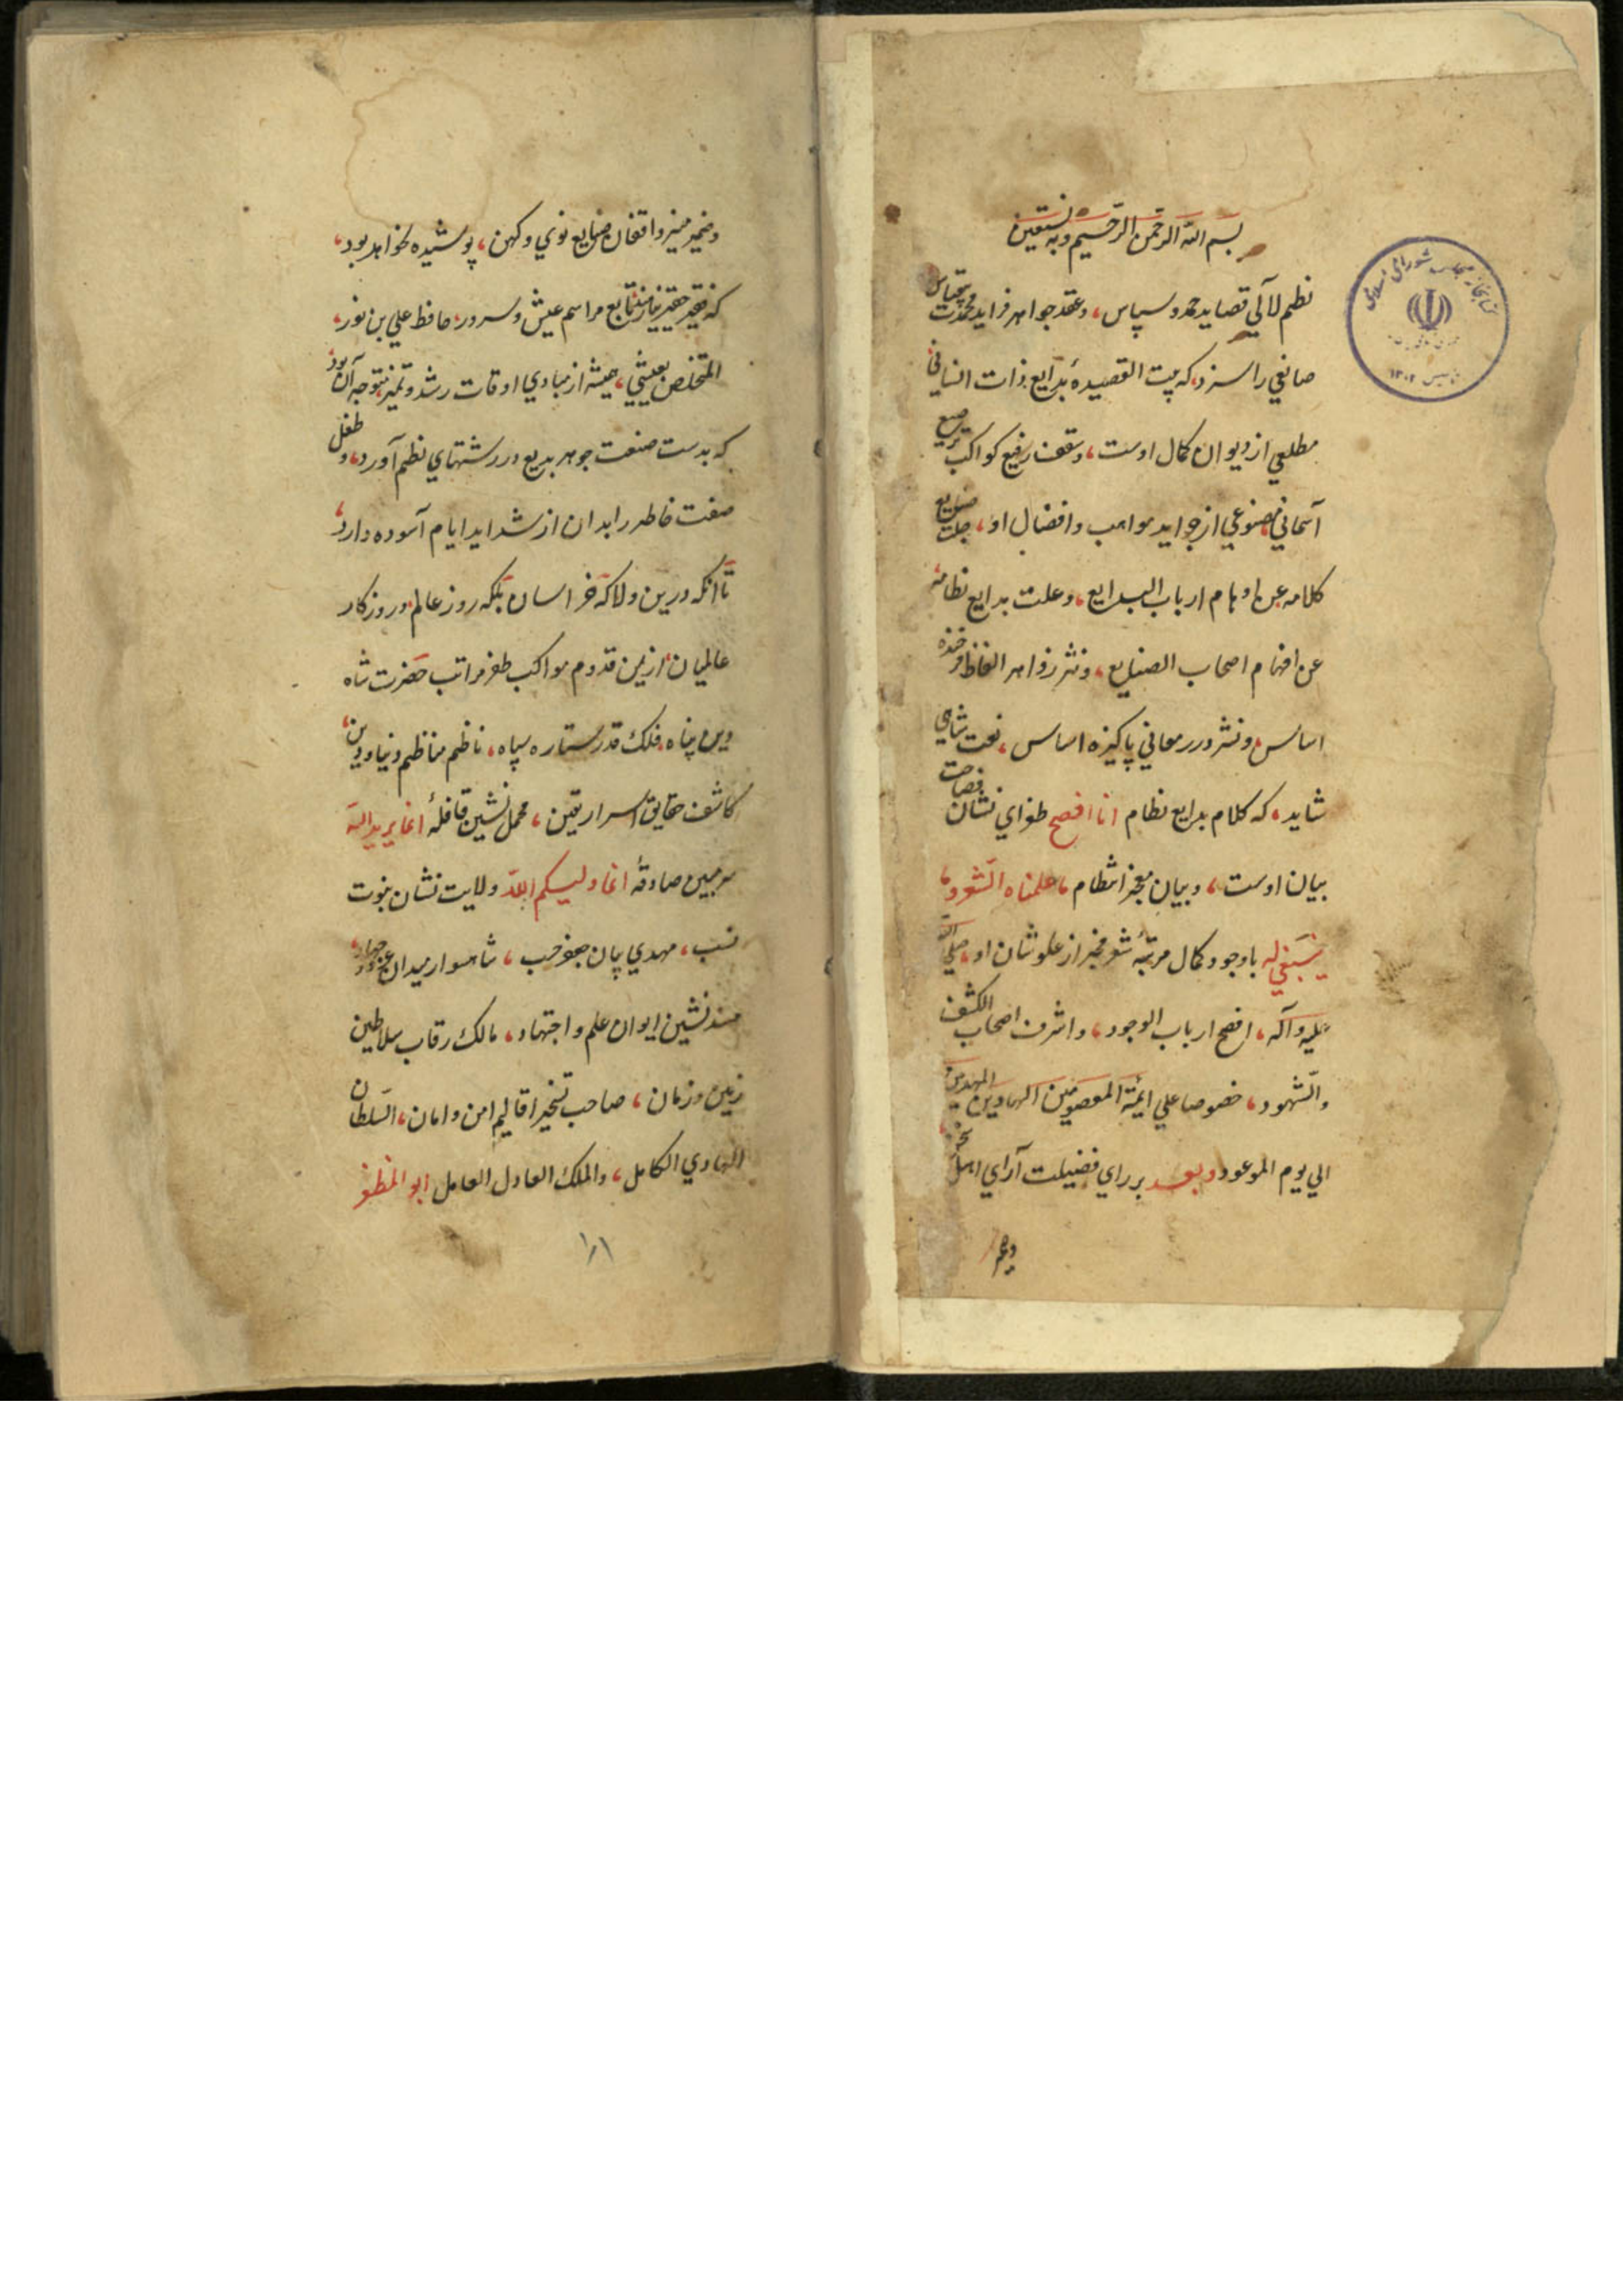 بسم الله الرحمن الرحیم وبه نستعین
نظم لآلي قصاید حمد و سپاس، وعقد جواهر فراید محمدت بیقیاس
صانعي را سزد، که بیت القصیدهٔ بدایع ذات انسانی
مطلعي از دیوان کمال اوست، وسقف رفیع کواکب ترصیع
آسمانی مصنوعي از جواید مواهب وافضال او، جلت صنایع
کلامه عن اوهام ارباب البدایع، وعلت بدایع نظامه
عن افهام اصحاب الصنایع، ونثر زواهر الفاظ فرخنده
اساس ونثر درر معاني پاکیزه اساس، نعت شاهی
شاید، که کلام بدایع نظام انا افصح طغرای نشان فصاحت
بیان اوست، وبیان معجز انتظام ما علمناه الشعر و ما
ینبغي له باوجود کمال مرتبهٔ شعر مخبر از علو شان او، صلي الله
علیه وآله، افصح ارباب الوجود، واشرف اصحاب الکشف
والشهود، خصوصا علي ائمة المعصومین الهادین المهدیین
الي یوم الموعود وبعد بر راي فضیلت آراي اهل
وضمیر
وضمیر منیر واقفان صنایع نوي وکهن، پوشیده نخواهد بود،
که فقیر حقیر متتابع مراسم عیش وسرور، حافظ علي بن نور،
المتخلص بعیشي، همیشه از مبادي اوقات رشد وتمیز متوجه آن بود
که بدست صنعت جوهر بدیع در رشتهاي نظم آورد، وطفل
صفت خاطر را بدان از شداید ایام آسوده دارد،
تا آنکه درین ولا که خراسان بلکه روز عالم، و روزکار
عالمیان، از یمن قدوم مواکب ظفر مراتب حضرت شاه
دین پناه، فلک قدر ستاره سپاه، ناظم مناظم دنیا و دین،
کاشف حقایق اسرار یقین، محمل نشین قافلهٔ انما یرید الله
سر مبین صادقهٔ انما ولیکم الله ولایت نشان نبوت
نسب، مهدي پیمان جعفر حسب، شاهسوار میدان غزو و جهاد،
مسند نشین ایوان علم واجتهاد، مالک رقاب سلاطین
زمین و زمان، صاحب تسخیر اقالیم امن و امان، السلطان
الهادي الکامل، والملک العادل العامل ابو المظفر